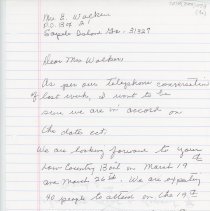 Mrs. E. Walker
P.O. Box 2
Sapelo Island Ga. 31327
Dear Mrs Walker,
As per our telephone conversation
of last week, I want to be
sure we are in accord on
the date set.
We are looking forward to your
Low Country Boil on March 19
and March 26th. We are expecting
40 people to attend on the 19th